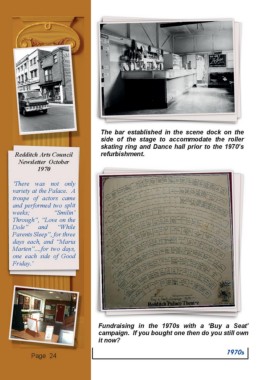 The bar established in the scene dock on the
side of the stage to accommodate the roller
skating ring and Dance hall prior to the 1970's
refurbishment.
Redditch Arts Council
Newsletter October
1970
'There was not only
variety at the Palace. A
troupe of actors came
and performed two split
weeks; "Smilin'
Through", "Love on the
Dole" and "While
Parents Sleep", for three
days each, and "Maria
Marten"....for two days,
one each side of Good
Friday.'
Redditch Palace Theatre
Fundraising in the 1970s with a 'Buy a Seat'
campaign. If you bought one then do you still own
it now?
Page 24
1970s